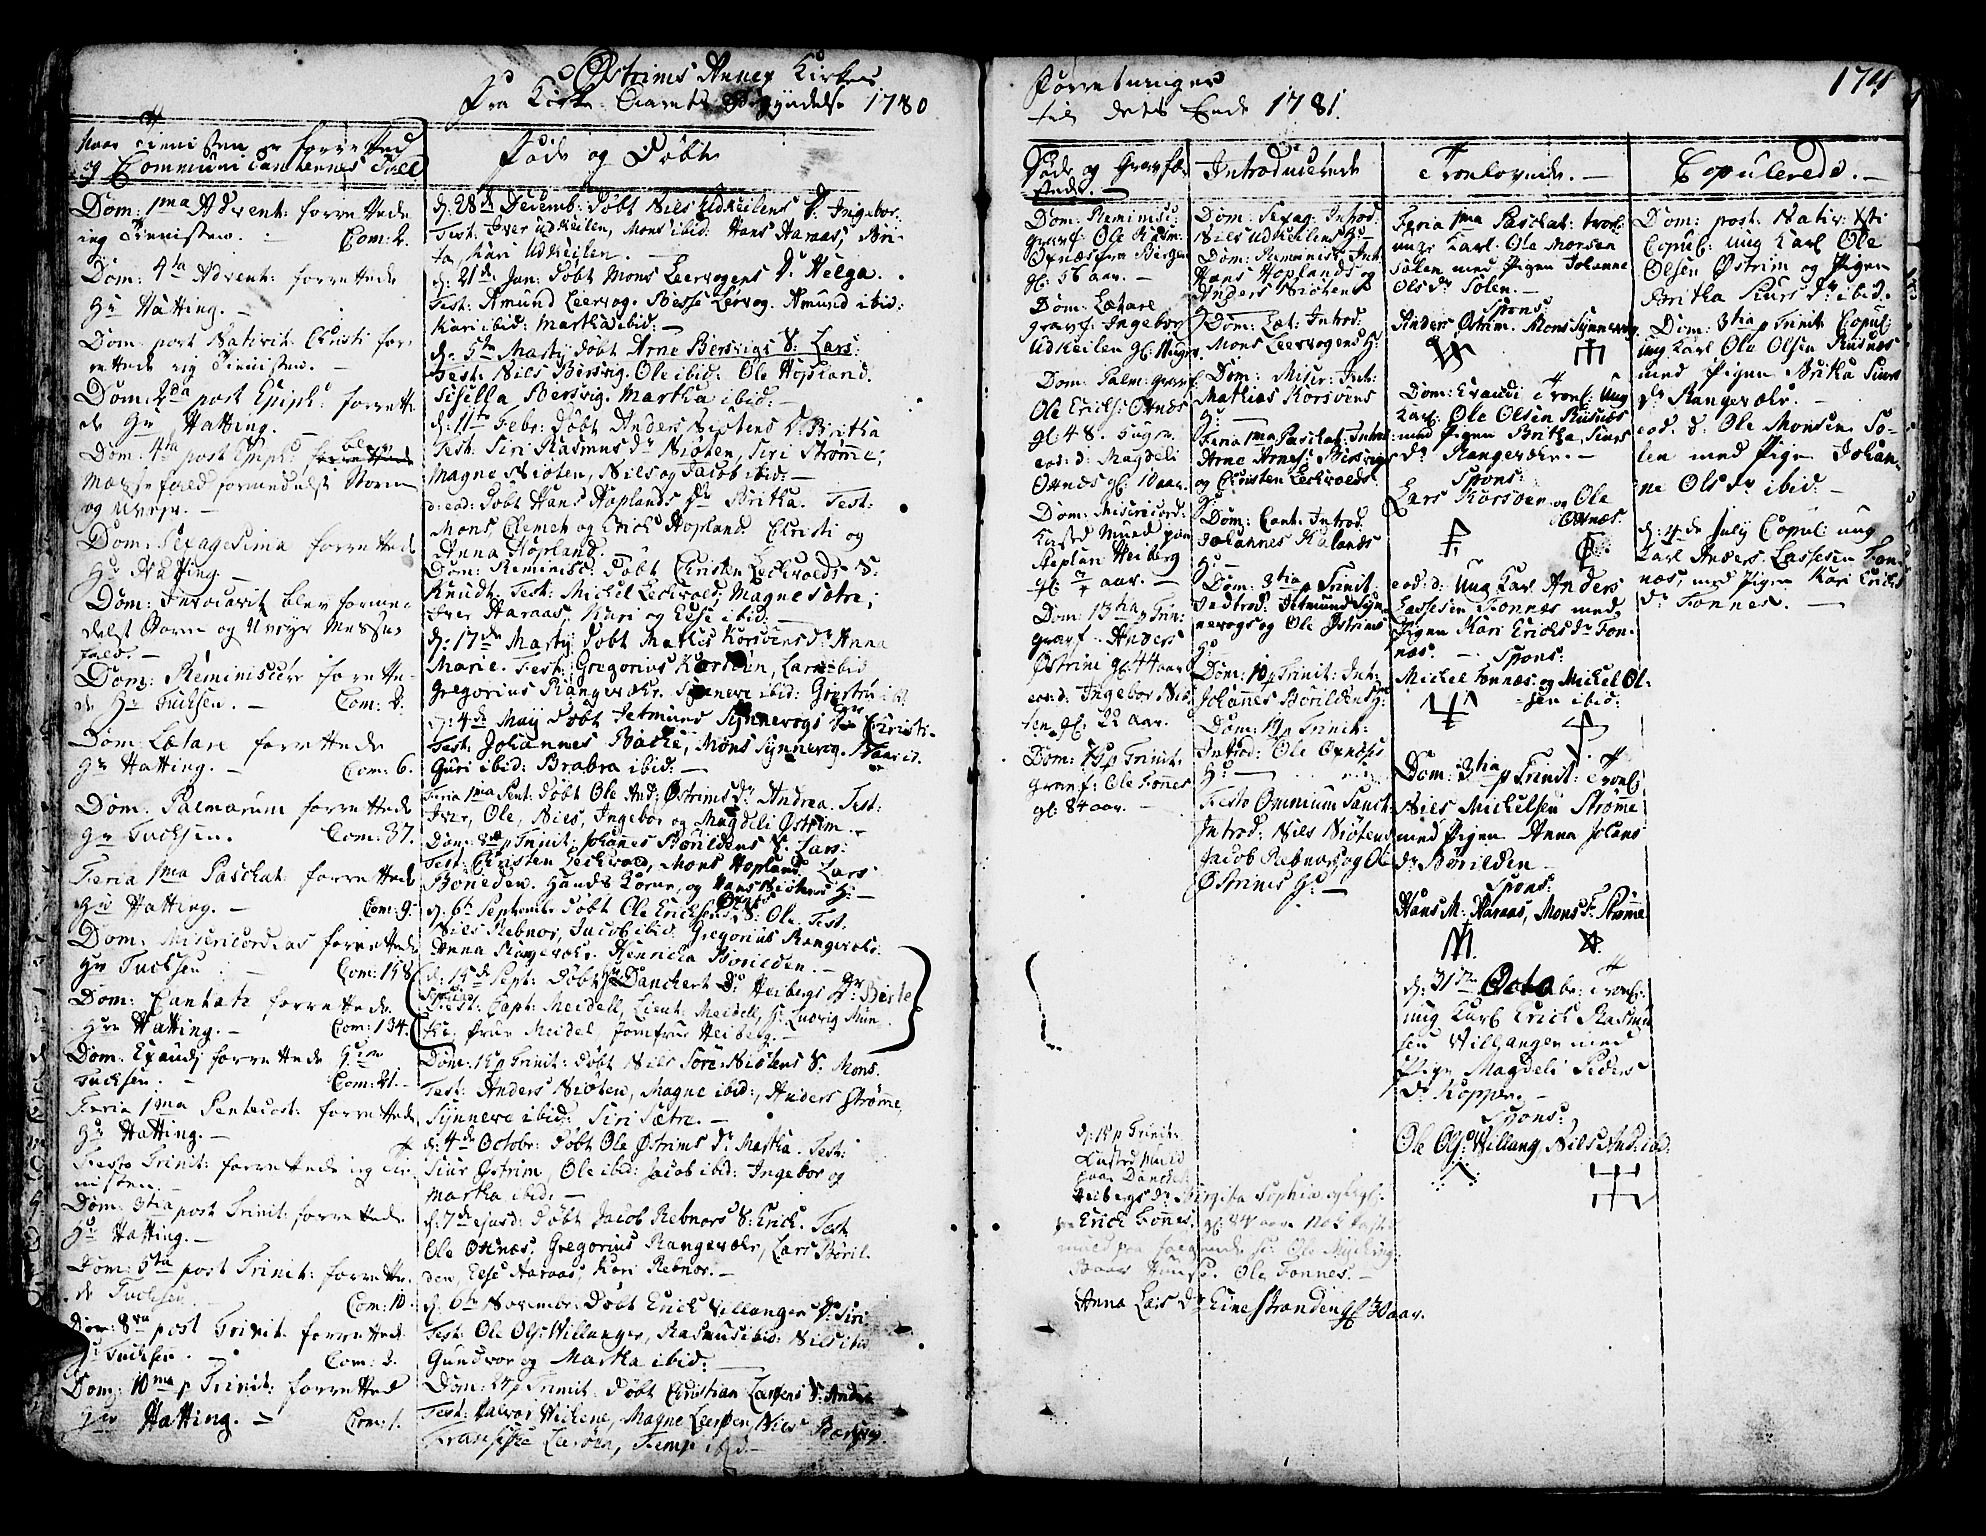 Østrims Annex Kirkes
Fra Kirke-Aarets Begyndelse 1780
Forretninger
til dets Ende 1781.
174
Naar Tienisten er forretted
og Communicanternes Tall
Dom: 1ma Advent: forrettede
ieg Tienisten. Com: 2.
Dom: 4ta Advent: forrettede
Hr Hatting. —
Dom: post Nativit: Christi for-
rettede ieg Tienisten. —
Dom: 2da post Epiph: forrette-
de Hr Hatting. —
Dom: 4ta post Epiph: blev
Messefald formedelst Storm
og Uveyr. —
Dom: Sexagesima forrettede
Hr Hatting. —
Dom: Invocavit blev forme-
delst Storm og Uveyr Messe-
fald. —
Dom: Reminiscere forrette-
de Hr Tuchsen. — Com: 2.
Dom: Lætare forrettede
Hr Hatting. — Com: 6.
Dom: Palmarum forrettede
Hr Tuchsen. Com: 37.
Feria 1ma Paschat: forrettede
Hr Hatting. — Com: 9.
Dom: Misericordias forrettede
Hr Tuchsen. — Com: 158.
Dom: Cantate forrettede
Hr Hatting. — Com: 134.
Dom: Exaudj forrettede Hr
Tuchsen. — Com: 21. —
Feria 1ma Pentecost: forrettede
Hr Hatting. —
Festo Trinit: forrettede ieg Tie-
nisten. —
Dom: 3tia post Trinit: forrettede
Hr Hatting. —
Dom: 5ta post Trinit: forrette-
de Tuchsen. Com: 10.
Dom: 8va post Trinit: forrettede
Hr Tuchsen. — Com: 3.
Dom: 10ma p Trinit: forrettede
Hr Hatting. — Com: 1.
Føde og Døbte
d: 28de Decemb: Døbt Nils Udkeilens D. Ingebor.
Test: Iver Udkeilen, Mons ibid: Hans Haraas, Bri-
ta, Kari Udkeilen. —
d: 21de Jan: Døbt Mons Leervogens Dr Helga.
Test: Amund Leervog. Besse Leervog. Amund ibid:
Kari ibid: Martha ibid: —
d: 5te Martij Døbt Arne Bersvigs S: Lars:
Test: Nils Bersvig. Ole ibid: Ole Hopland.
Sisella Bersvig. Martha ibid: —
d: 11te Febr: Døbt Anders Niøtens D. Britha
Test: Siri Rasmus Dr Niøten, Siri Strøme;
Magne Niøten, Nils og Jacob ibid: —
d: eod: Døbt Hans Hoplands Dr Britha. Test:
Mons, Clemet og Erich Hopland. Christi og
Anna Hopland.
Dom: Reminisc: Døbt Christen Leckvolds S:
Knudt: Test: Michel Leckvold, Magne Sætre;
Iver Haraas, Nuri og Else ibid: —
d: 17de Martij Døbt Mathis Korsøens Dr Anna
Marie. Test: Gregorius Korsøen, Lars ibid
Gregorius Rangevær. Synneve ibid:
d: 4de Maij Døbt Detmund Synnevogs Dr Christi-
Test: Johannes Backe, Mons Synnevog.
Guri ibid: Brabra ibid: —
Feria 1ma Pent: Døbt Ole And: Østrims Dr Andrea. Test:
Iver, Ole, Nils, Ingebor og Magdeli Østrim. —
Dom: 8va p Trinit: Johannes Børildens S. Lars:
Test: Christen Leckvold, Mons Hopland, Lars
Boneden.
d: 6te Septembr Døbt Ole Erichsens Oxnes S. Ole. Test.
Nils Rebnor, Jacob ibid: Gregorius Rangevær.
Anna Rangevær. Henricha Børilden. —
d: 15de Sept: Døbt Hr Danckert D: Heibergs Dr Birte
Sophia Test: Capt: Meidell, Lieut: Meidell, Hr: Ludvig Mun-
the, Frue Meidel, Jomfrue Heiberg. —
Dom: 15 p Trinit: Døbt Nils Sørenss Niøtens S. Mons.
Test: Anders Niøten, Magne ibid:, Anders Strømme,
Synneve ibid: Siri Sætre. —
d: 4de Octobr: Døbt Ole Østrims Dr Martha. Test:
Siur Østrim, Ole ibid: Jacob ibid: Ingebor og
Martha ibid: —
d: 7de ejusd: Døbt Jacob Rebnors S: Erich. Test
Ole Oxnæs, Gregorius Rangevær, Lars Børil-
den, Else Haraas, Kari Rebnor. —
d: 6te Novembr: Døbt Erich Villanger Dr: Siri
Test: Ole Ols: Willanger, Rasmus ibid: Nils ibid
Gundvor og Martha ibid: —
Dom: 24 p Trinit: Døbt Christian Larsens S. Andre
Test: Halvor Wichene, Magne Leerøen, Nils Bersvig
Franciske Leerøen,
Døde og Gravfæ-
stede. —
Dom: Reminisc:
gravf: Ole Rasm:
Oxnæs fra Bergen
gl: 56 aar. —
Dom: Lætare
gravf: Ingebor
Udkeilen gl: Uger.
Dom: Palm: gravf:
Ole Erichs: Oxnæs
gl: 48. Uger.
eod: d: Magdeli
Oxnæs gl: 10 aar. —
Dom: Misericord:
kasted Muld paa
Stephan Heiberg
gl: aar. —
Dom: 13tia p Trin:
gravf. Anders
Østrim gl: 44 aar
eod: Ingebor Niø-
ten, gl: 22 aar.
Dom: p Trinit:
gravf: Ole Fonnes
gl: 84 aar. —
d: 15 p Trinit:
kasted Muld
paa Danck:
Heibergs Dr Birgita Sophia
Erich Fonnes, gl: 84 aar Nok kasted
muld paa følgende
Ole Fonnes. —
Anna Lars Dr Einestranden gl 30 aar.
Introducerede
Dom: Sexag. Introd:
Nils Udkeilens H: —
Dom: Reminisc: Int
Hans Hoplands og
Anders Niøtens H:
Dom: Læt: Introd.
Mons Leervogens H:
Dom: Miser: Int:
Mathias Korsøens
H: —
Feria 1ma Paschat: Introd
Arne Arnes: Bersvigs
og Christen Leckvolds
H: —
Dom: Cant: Introd.
Johannes Kalands
H: —
Dom: 3tia p Trinit:
Introd: Detmund Syn-
nevogs og Ole Østrims
H: —
Dom: 10 p Trinit: Int:
Johannes Børildens H:
Dom: 14 p Trinit:
Introd: Ole Oxneses
H: —
Festo Omnium Sanct:
Introd: Nils Niøtens
Jacob Rebnors, og Ole
Østrims H: —
Trolovede. —
Feria 1ma Paschat: trol:
unge Karl: Ole Monsen
Solen med Pigen Johanne
Ols Dr Solen. —
Spons:
Anders Østrim. Mons Synnevog
Dom: Exaudi Trol: Ung
Karl: Ole Olsen Risnæs
med Pigen Britha Siurs
Dr Rangevær. —
Spons:
Lars Korsøen og Ole
Oxnæs.
eod: d: Ung Karl Anders
Lassesen Fonnæs med
Pigen Kari Erichs Dr Fon-
næs. — Spons:
Michel Fonnæs og Michel Ol-
sen ibid:
Dom: 3tia p Trinit: Trol:
Niels Michelsen Strøme
med Pigen Anna Johans
Dr Børilden —
Spons:
Hans M. Haraas, Mons F. Strøme
d: 31te Octobr: Trol:
ung Karl Erich Rasmu-
sen Willanger med
Pige Magdeli Peders
Dr Kopper. —
Spons:
Ole Ols: Willang, Nils And: ibid.
Copulerede. —
Dom: post Nativ: Xti
Copul: ung Karl Ole
Olsen Østrim og Pigen
Britha Siurs Dr ibid.
Dom: 3tia p Trinit Copul:
Ung Karl Ole Olsen Risnæs
med Pigen Britha Siurs
Dr Rangevær. —
eod. d: Ole Monsen So-
len med Pigen Johan-
ne Ols Dr ibid: —
d: 4de July Copul: ung
Karl Anders Lassesen Fon-
næs, med Pigen Kari Erichs
Dr Fonnes. —